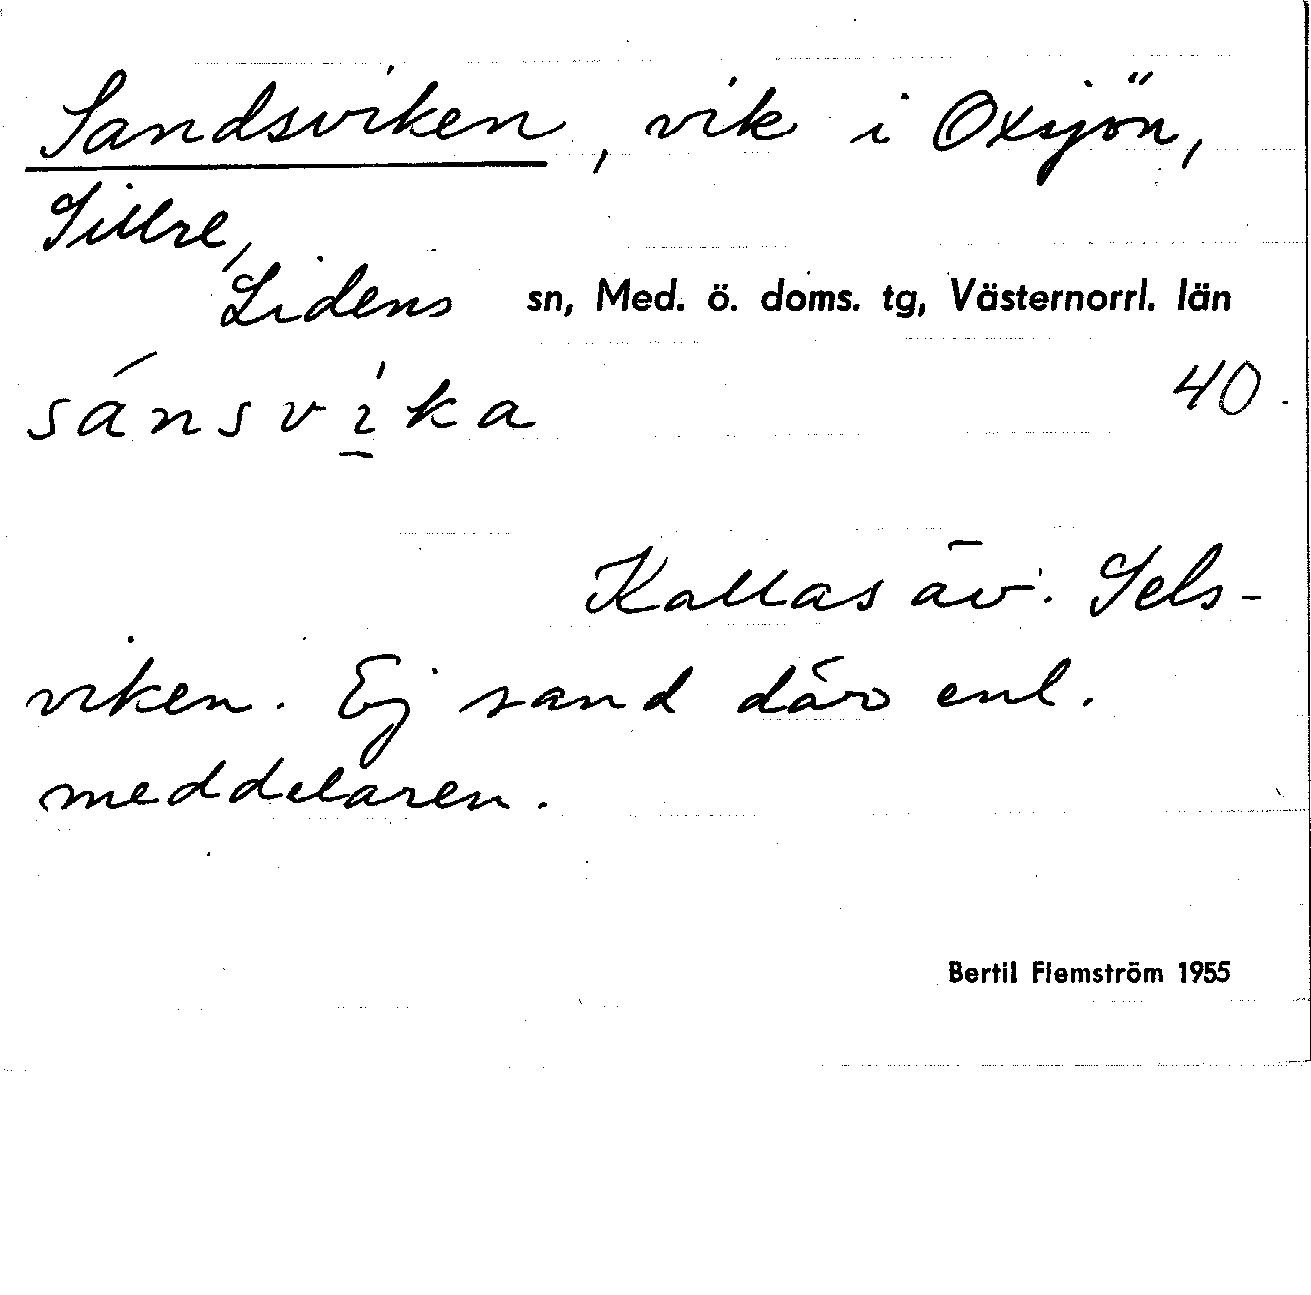 Sandsviken, vik i Oxsjön,
Sillre,
Lidens sn, Med. ö. doms. tg, Västernorrl. län
sánsvi̲̍ka 40.
Kallas äv. Sels-
viken. Ej sand där enl.
meddelaren.
Bertil Flemström 1955